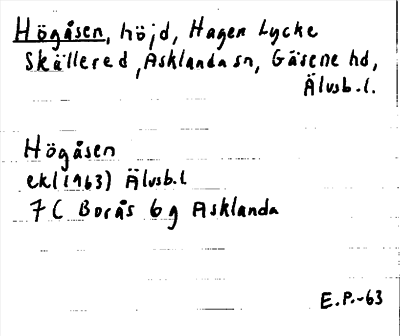 Högåsen, höjd, Hagen Lycke
Skällered, Asklanda sn, Gäsene hd,
Älvsb.l.
Högåsen
ekl (1963) Älvsb.l
7C Borås 6g Asklanda
E.P.-63